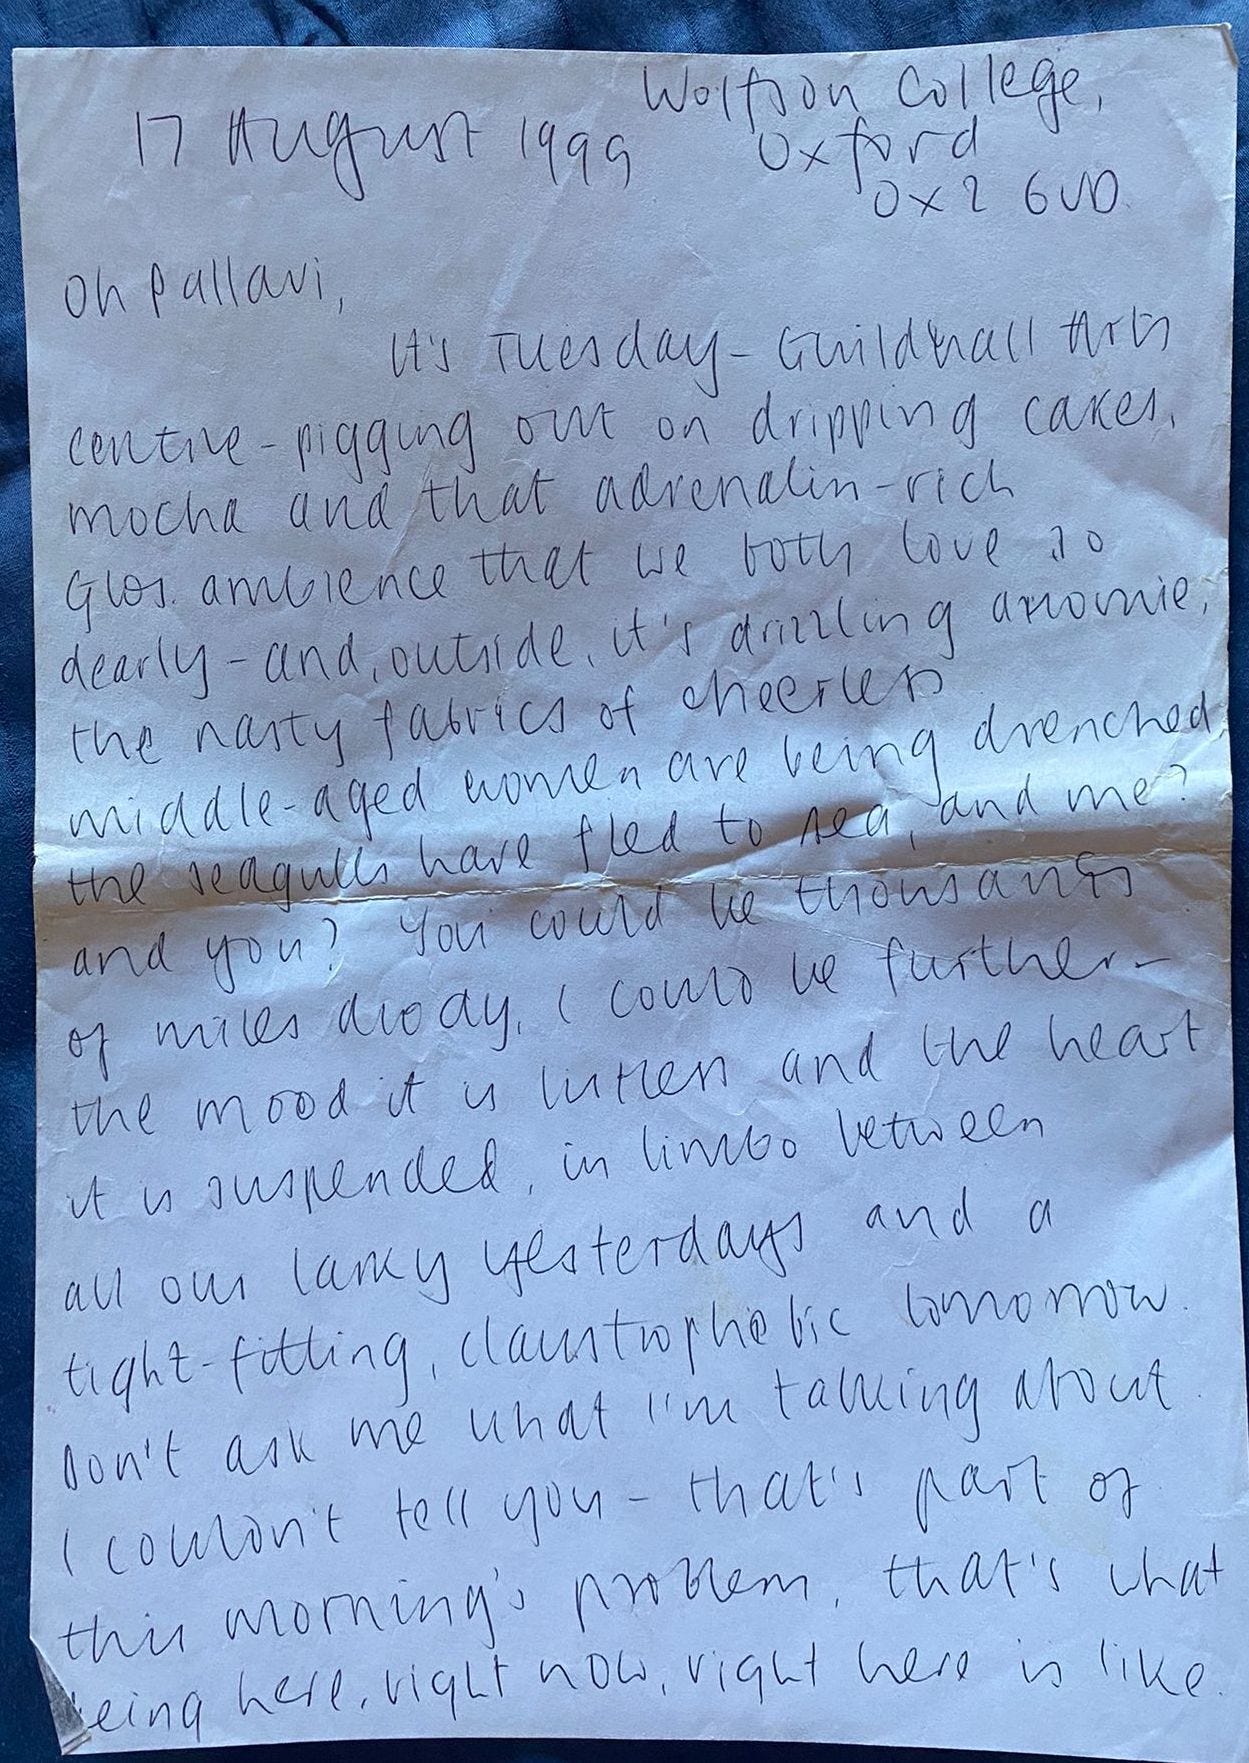 Wolfson College,
17 August 1999
Oxford
OX2 6UD.
Oh Pallavi,
It's Tuesday - Guildhall Arts
Centre - pigging out on dripping cakes,
mocha and that adrenalin-rich
Glos. ambience that we both love so
dearly - and, outside, it's drizzling anomie,
the nasty fabrics of cheerless
middle-aged women are being drenched,
the seagulls have fled to sea, and me?
and you? You could be thousands
of miles away, I could be further -
the mood it is listless and the heart
it is suspended, in limbo between
all our larky yesterdays and a
tight-fitting, claustrophobic tomorrow.
Don't ask me what I'm talking about.
I couldn't tell you - that's part of
this morning's problem, that's what
being here, right now, right here is like.